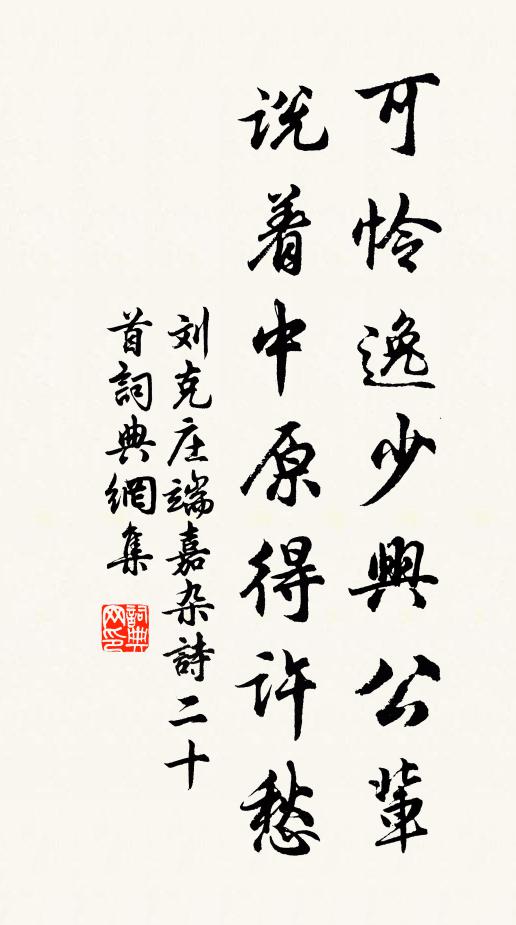 可怜逸少興公輩
説着中原得許愁
刘克庄端嘉杂詩二十
首詞典網集
詞典
网印